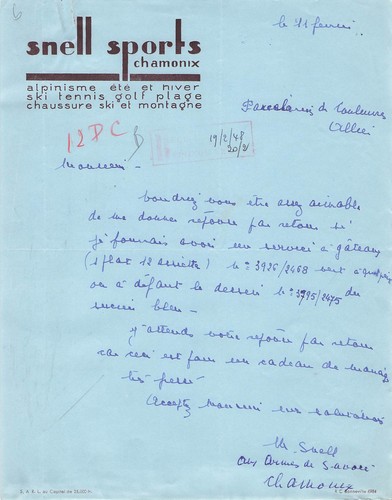 snell sports
chamonix
alpinisme été et hiver
ski tennis golf plage
chaussure ski et montagne
le 11 février
Porcelaines de Couleuvre
Allier
12 P C
19/2/48
20/2/
Monsieur -
Voudriez vous être assez aimable
de me donner réponse par retour si
je pourrais avoir un service à gâteaux
(1 plat 12 assiettes) N: 3926/2468 vert à
ou à défaut le dessin N: 3795/2475 du
même bleu -
J'attends votre réponse par retour
car ceci est pour un cadeau de mariage
très pressé -
Acceptez Monsieur mes salutations
M Snell
aux Armes de Savoie
Chamonix
S. A. R. L. au Capital de
R. C. Bonneville